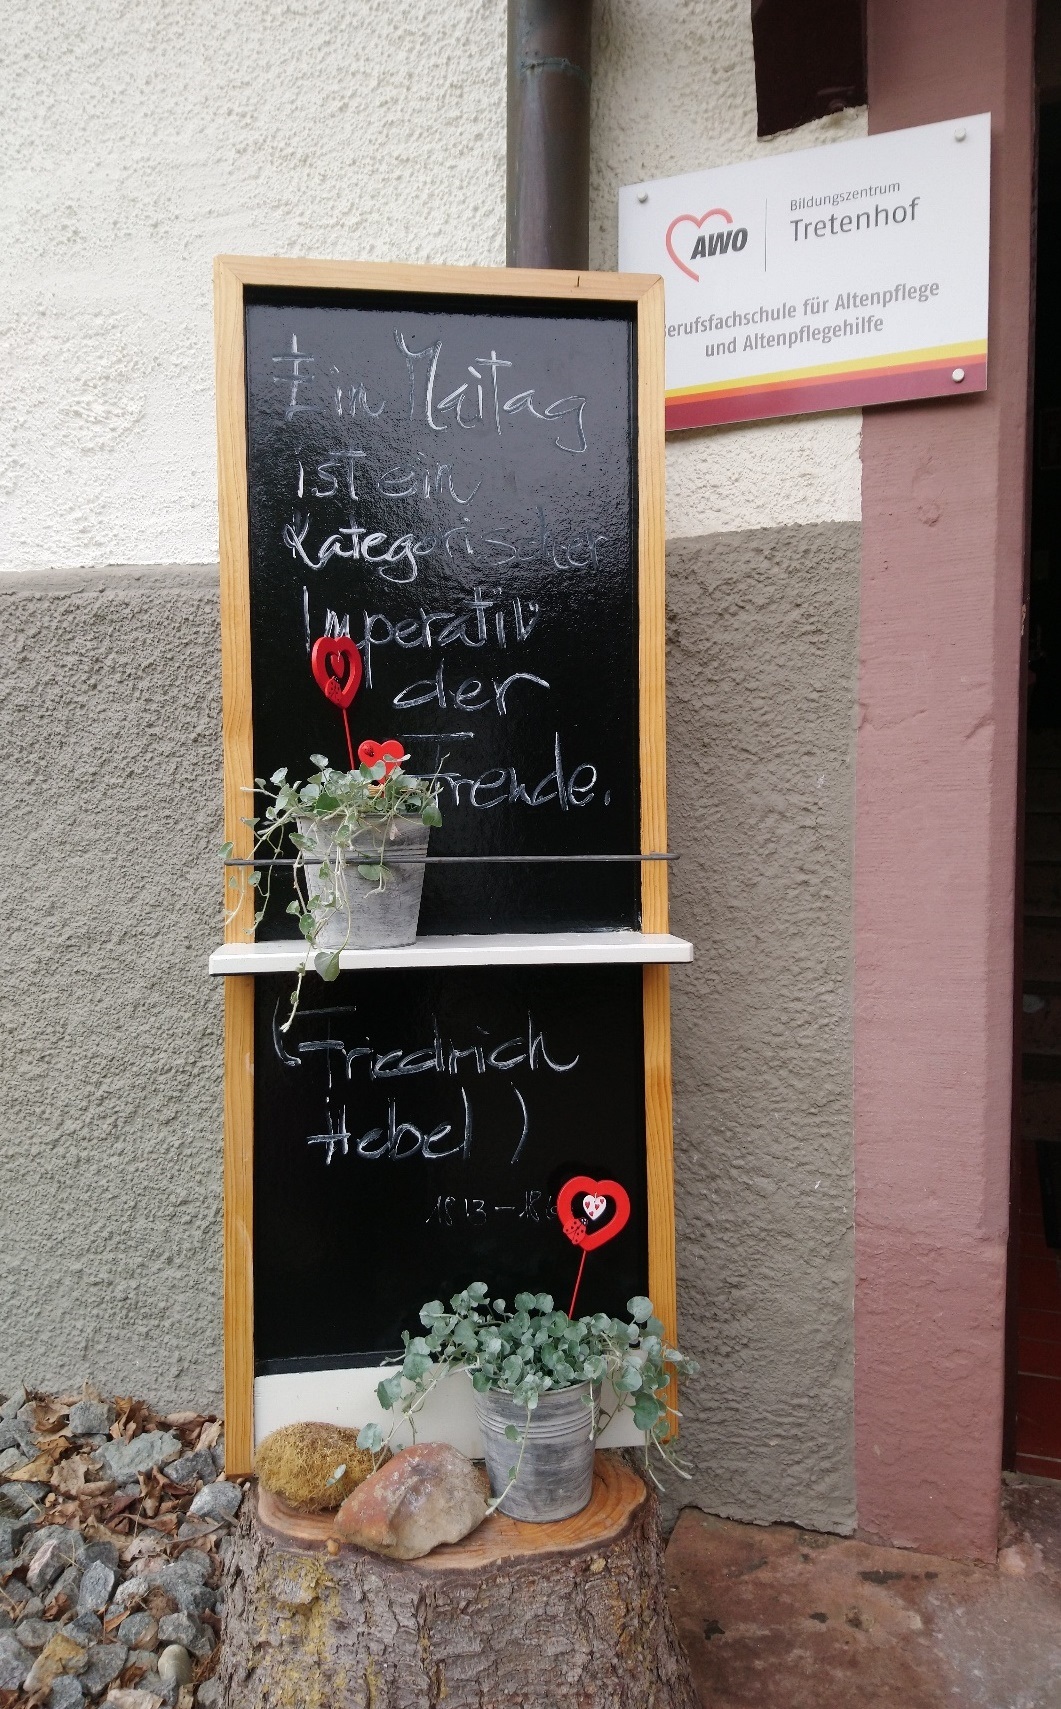 Ein Maitag
ist ein
kategorischer
Imperativ
der
Freude.
(Friedrich
Hebel)
1813-18
AWO
Bildungszentrum
Tretenhof
erufsfachschule für Altenpflege
und Altenpflegehilfe